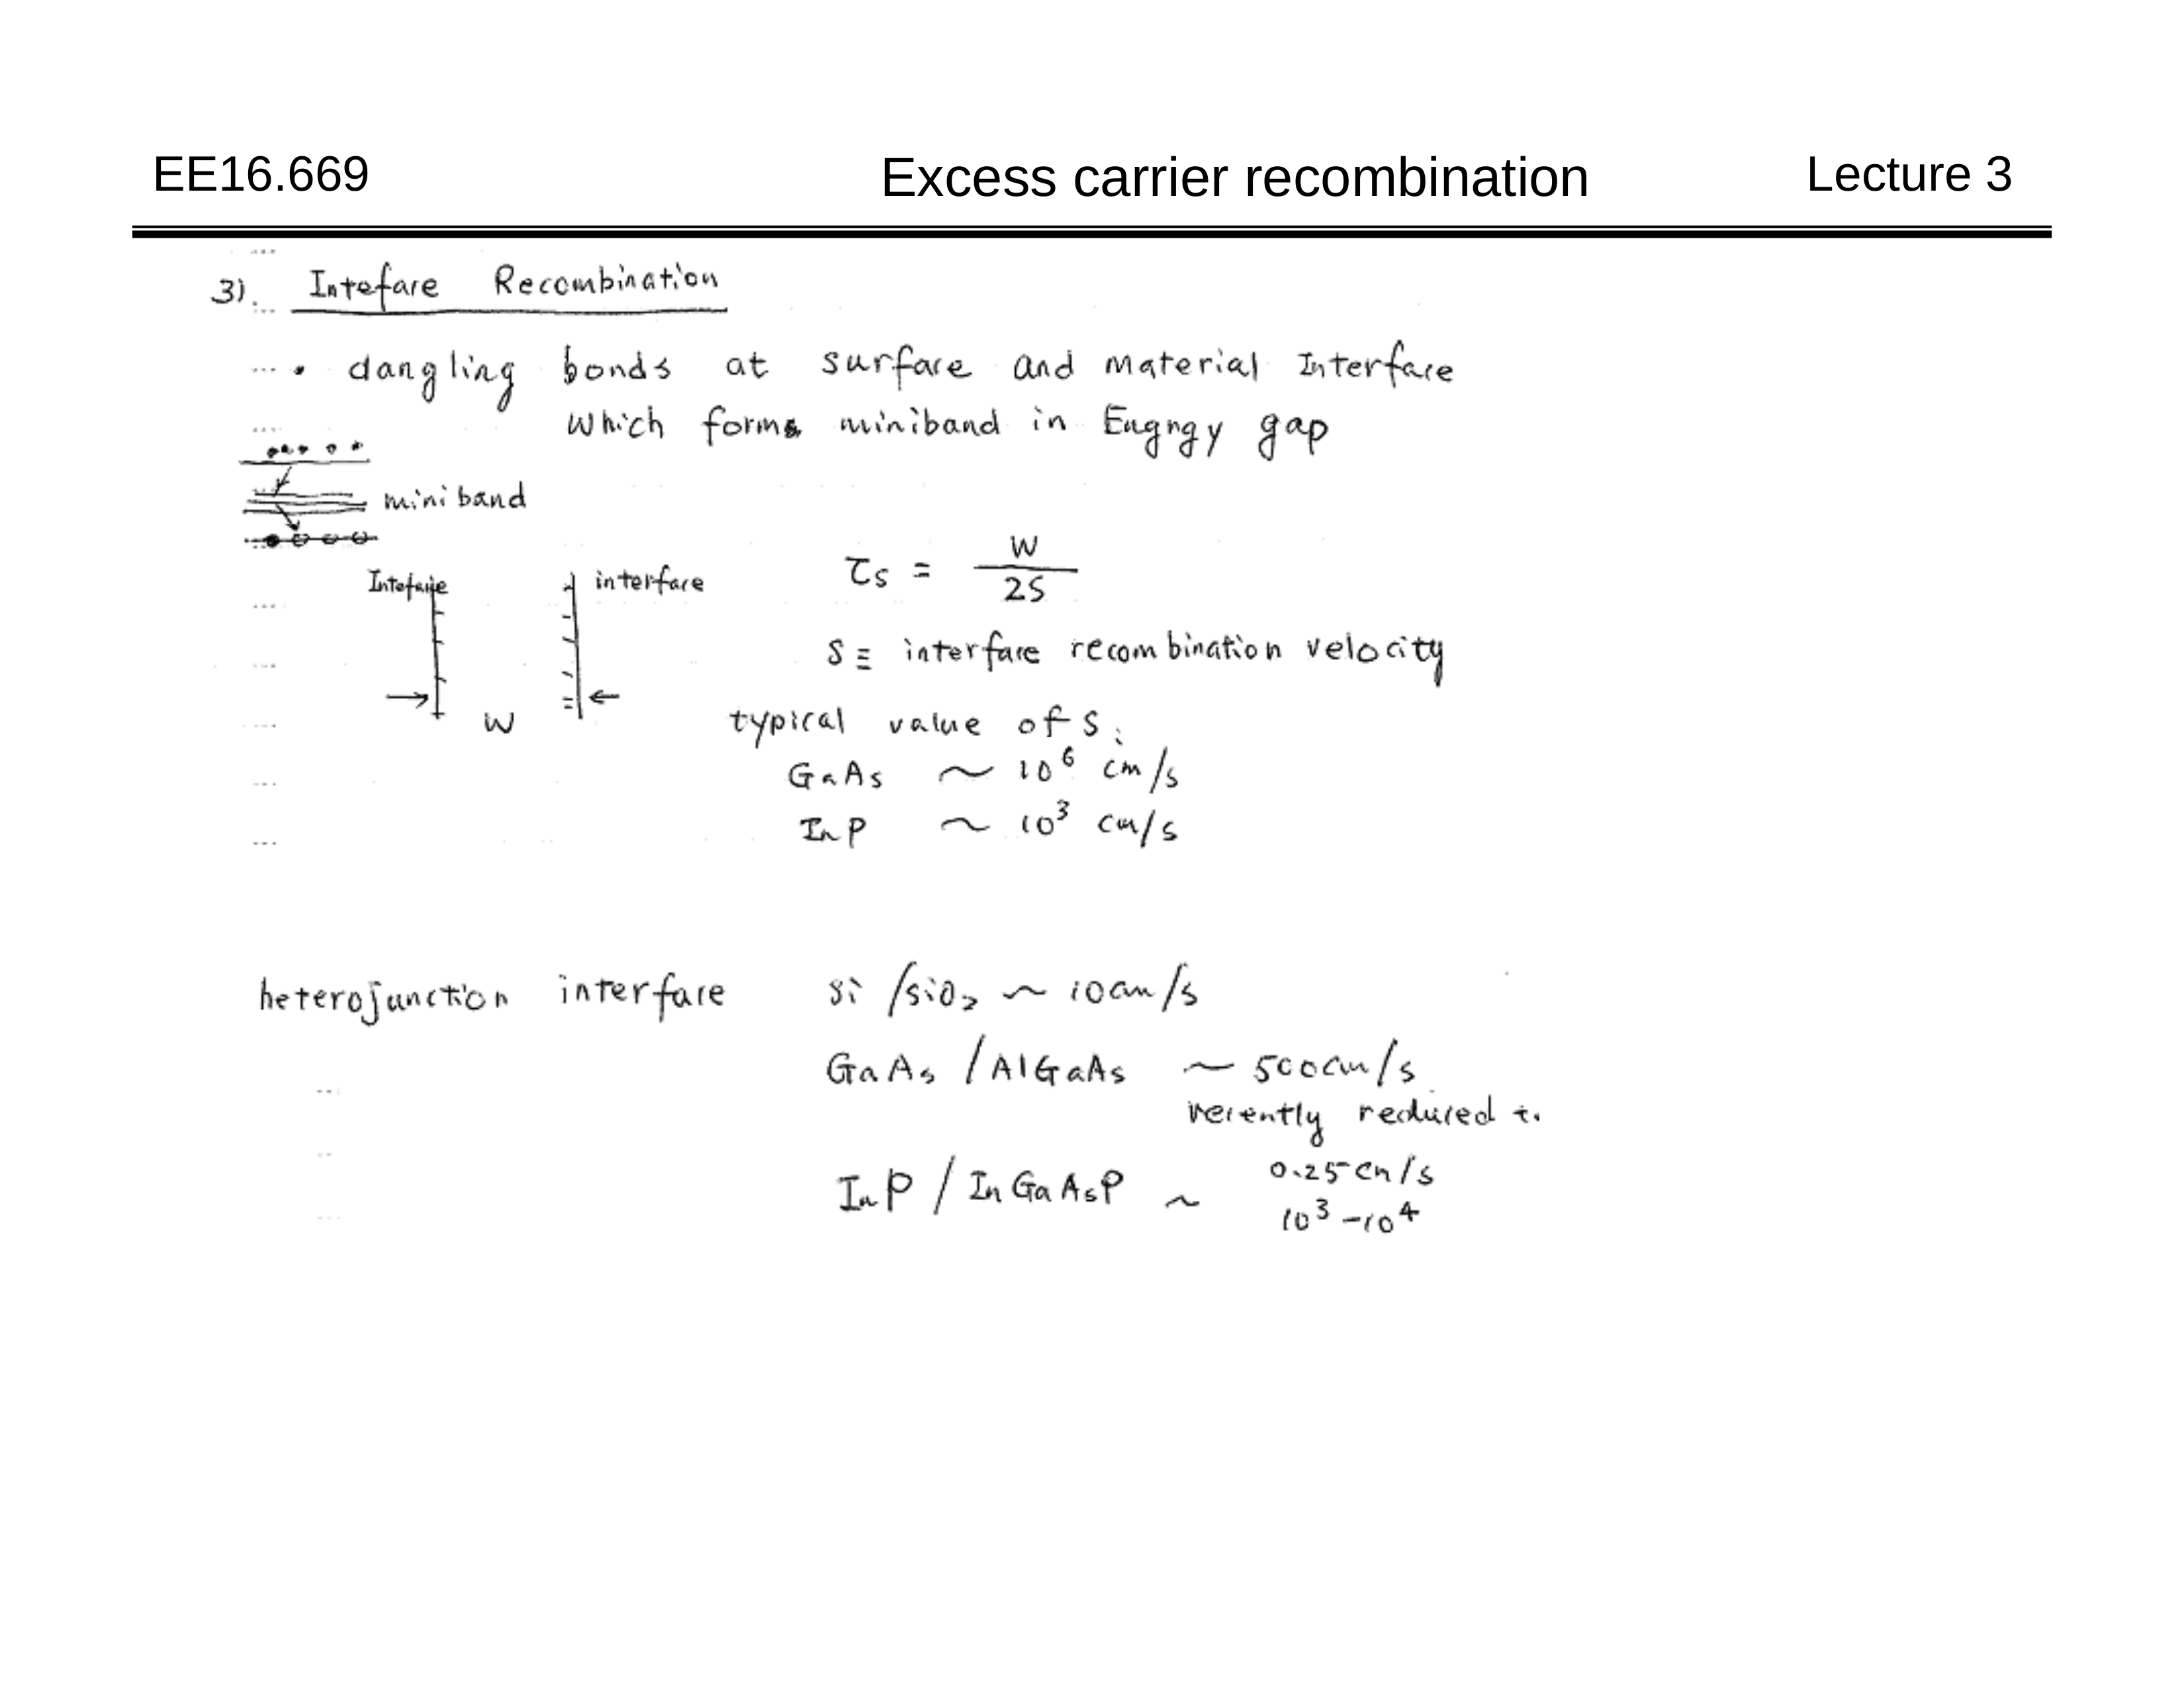 EE16.669 Excess carrier recombination Lecture 3
3). Inteface Recombination
• dangling bonds at surface and material Interface
which forms miniband in Engrgy gap
miniband
Inteface interface
W
τs = W / 2S
S ≡ interface recombination velocity
typical value of S:
GaAs ~ 10⁶ cm/s
InP ~ 10³ cm/s
heterojunction interface Si /SiO₂ ~ 10cm/s
GaAs /AlGaAs ~ 500cm/s
recently reduced to
0.25 cm/s
InP / InGaAsP ~ 10³ -10⁴